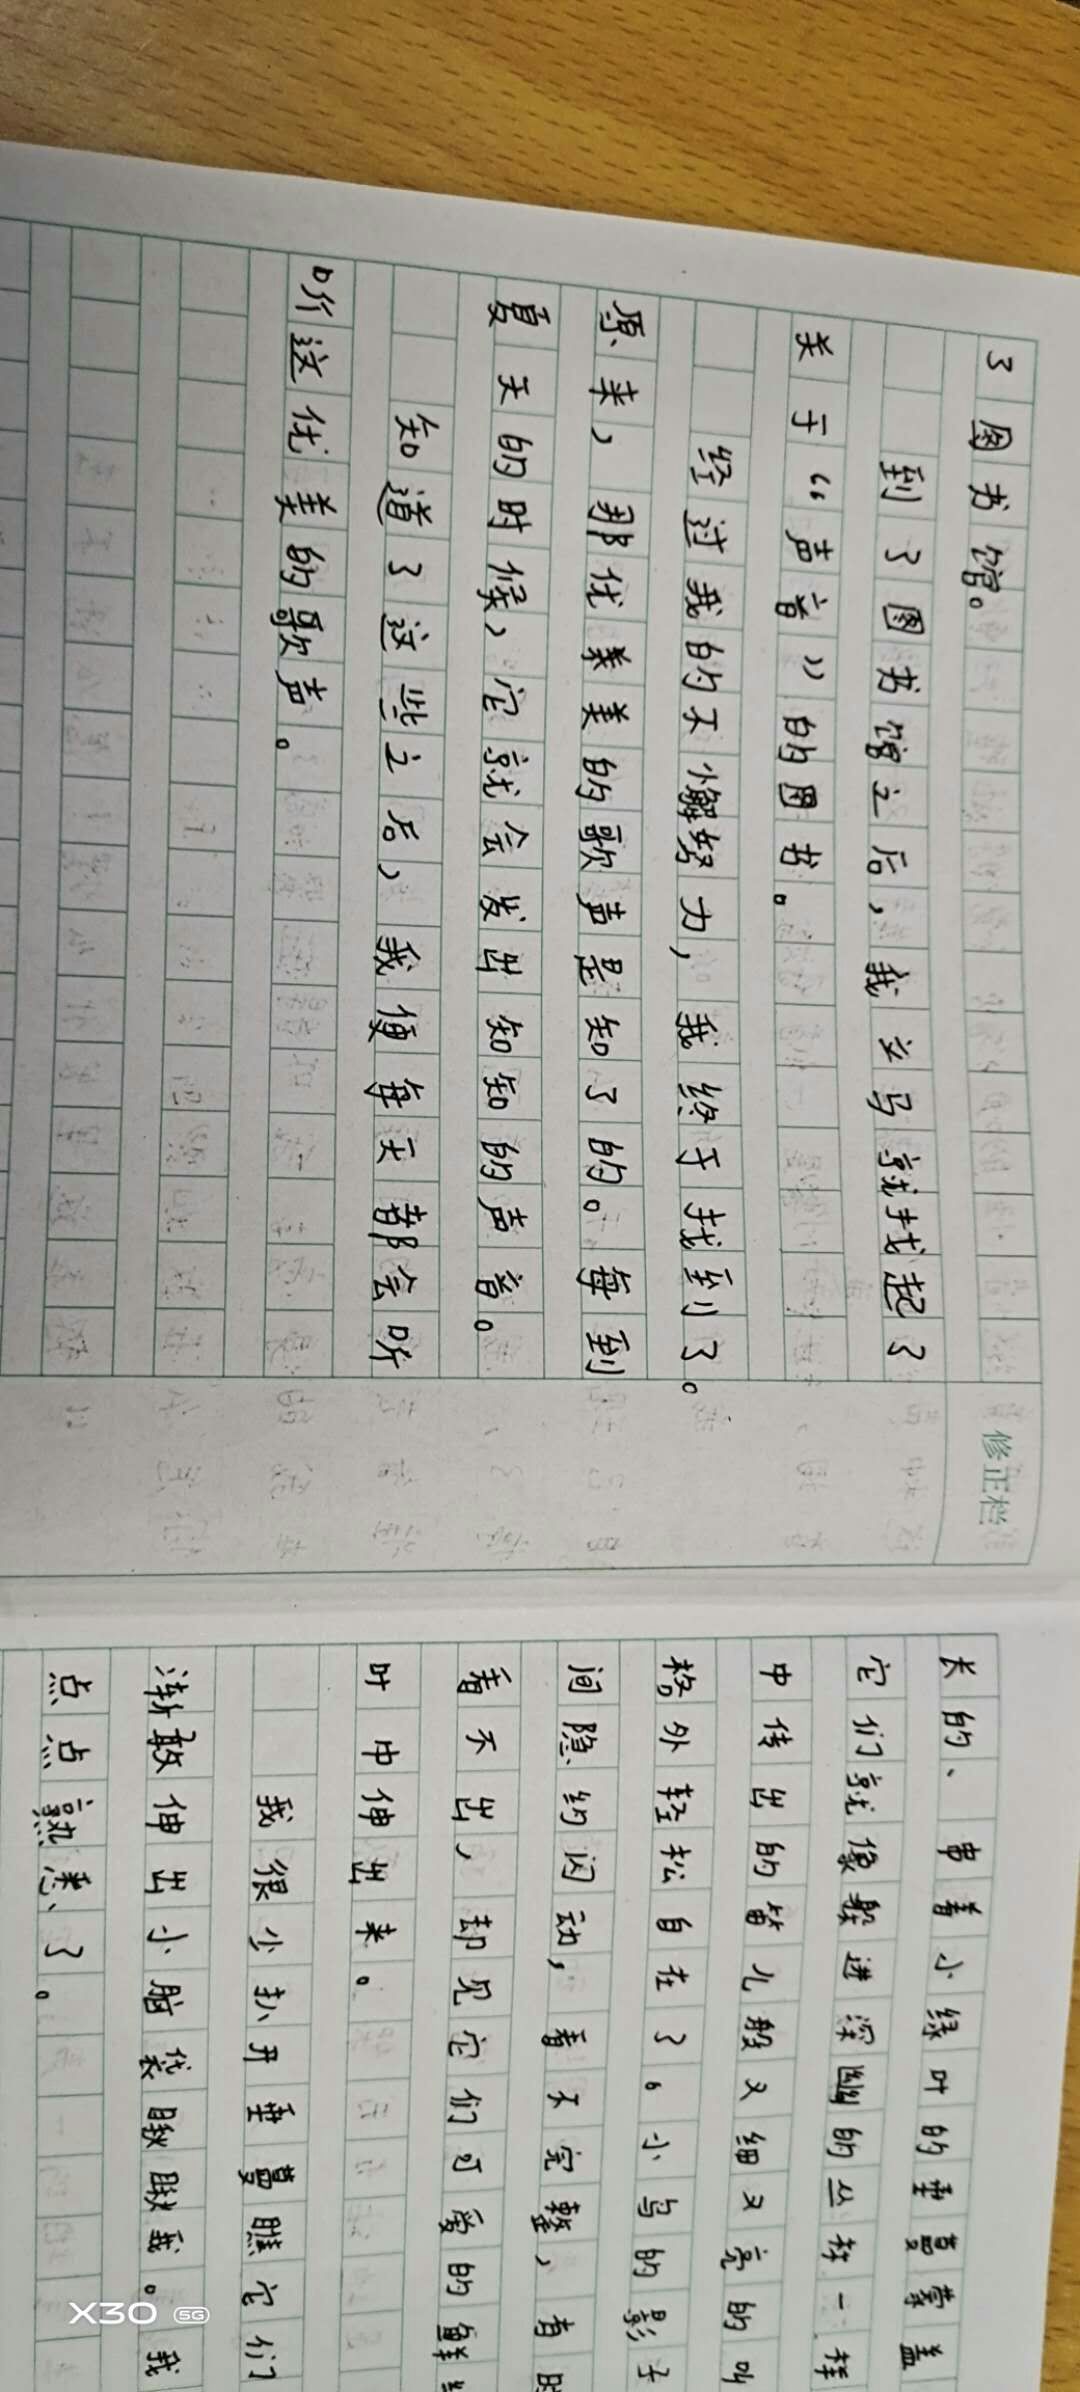 了图书馆。
到了图书馆之后，我立马就找起了
关于“声音”的图书。
经过我的不懈努力，我终于找到了。
原来，那优美美的歌声是知了的。每到
夏天的时候，它就会发出知知的声音。
知道了这些之后，我便每天都会听
听这优美的歌声。
修正栏
长的、串着小绿叶的垂蔓蒙盖
它们就像躲进深幽的丛林一样
中传出的笛儿般又细又亮的叫
格外轻松自在了。小鸟的影子
间隐约闪动，看不完整，有时
看不出，却见它们可爱的鲜
叶中伸出来。
我很少扒开垂蔓瞧它们
渐敢伸出小脑袋瞅瞅我。我
点点熟悉了。
X30 5G